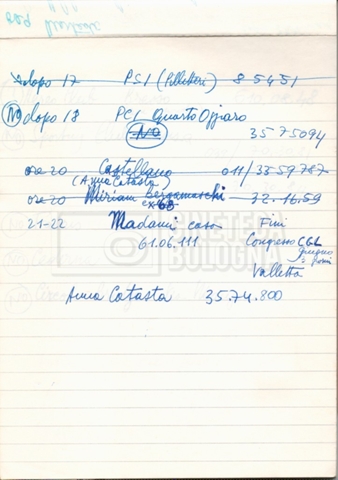 dopo 17 PSI (Pellettieri) 85451
NO dopo 18 PCI QuartoOggiaro
NO 3575094
ore 20 Castellano 011/3359787
(Anna Catasta)
ore 20 Miriam Bergamaschi 32.16.59
21-22 Madami casa Fini
61.06.111 Congresso CGL
giugno
Valletta
CINETECA
BOLOGNA
Anna Catasta 3574.800